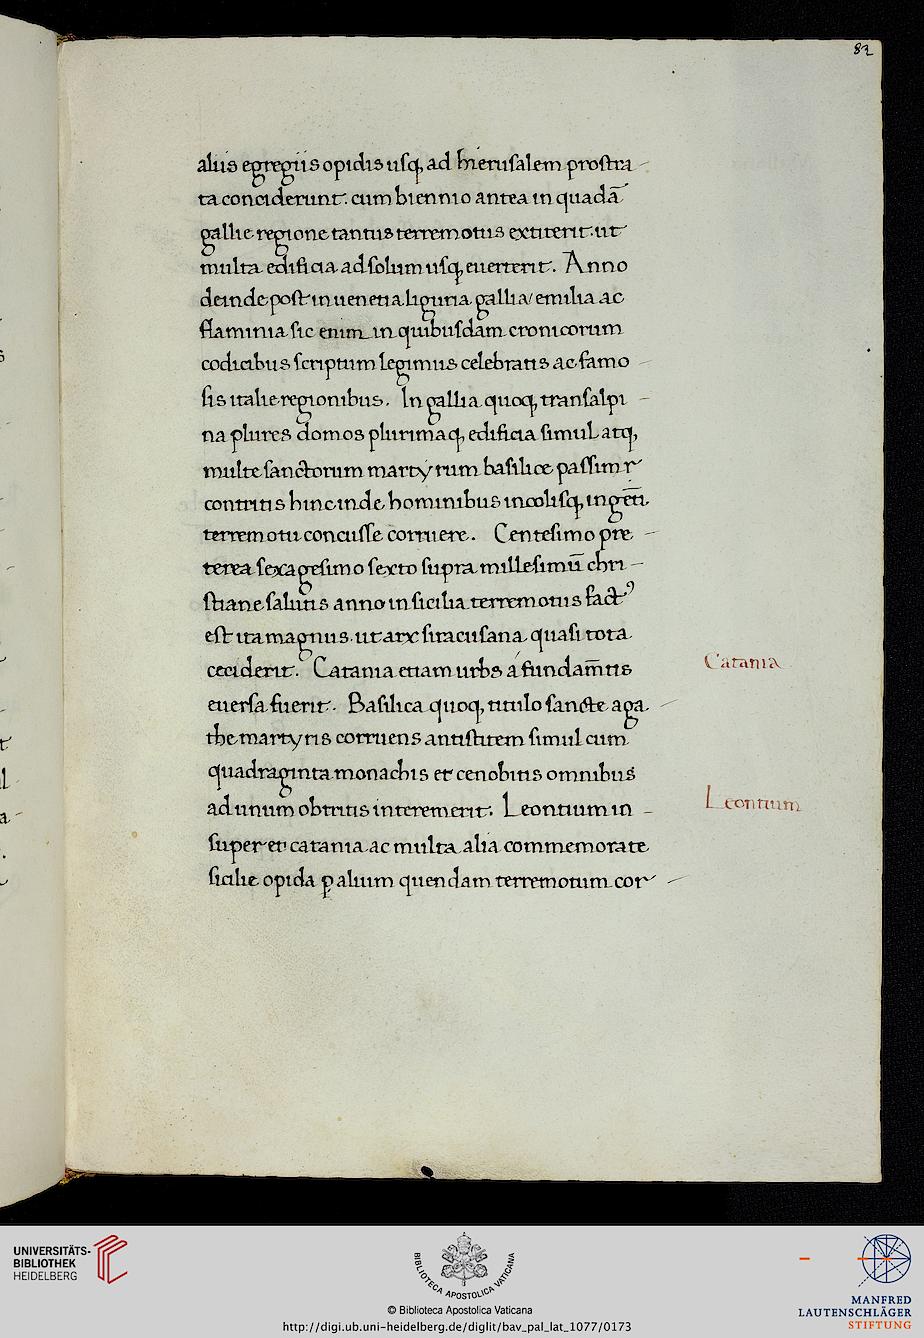 82
aliis egregiis opidis usq, ad hierusalem prostra-
ta conciderunt: cum biennio antea in quadā
gallie regione tantus terremotus extiterit: ut
multa edificia ad solum usq, euerterit. Anno
deinde post in uenetia liguria gallia emilia ac
flaminia sic enim in quibusdam cronicorum
codicibus scriptum legimus celebratis ac famo-
sis italie regionibus. In gallia quoq, transalpi-
na plures domos plurimaq, edificia simul atq,
multe sanctorum martyrum basilice passim
contritis hinc inde hominibus incolisq, ingēti
terremotu concusse corruere. Centesimo pre-
terea sexagesimo sexto supra millesimū chri-
stiane salutis anno in sicilia terremotus factꝰ
est ita magnus. ut arx siracusana quasi tota
ceciderit. Catania etiam urbs á fundam̄tis
Catania
euersa fuerit. Basilica quoq, titulo sancte aga-
the martyris corruens antistitem simul cum
quadraginta monachis et cenobitis omnibus
ad unum obtritis interemerit. Leontium in-
Leontium
super et catania ac multa alia commemorate
sicilie opida ꝑ alium quendam terremotum cor-
UNIVERSITÄTS-
BIBLIOTHEK
HEIDELBERG
BIBLIOTECA APOSTOLICA VATICANA
© Biblioteca Apostolica Vaticana
http://digi.ub.uni-heidelberg.de/diglit/bav_pal_lat_1077/0173
MANFRED
LAUTENSCHLÄGER
STIFTUNG